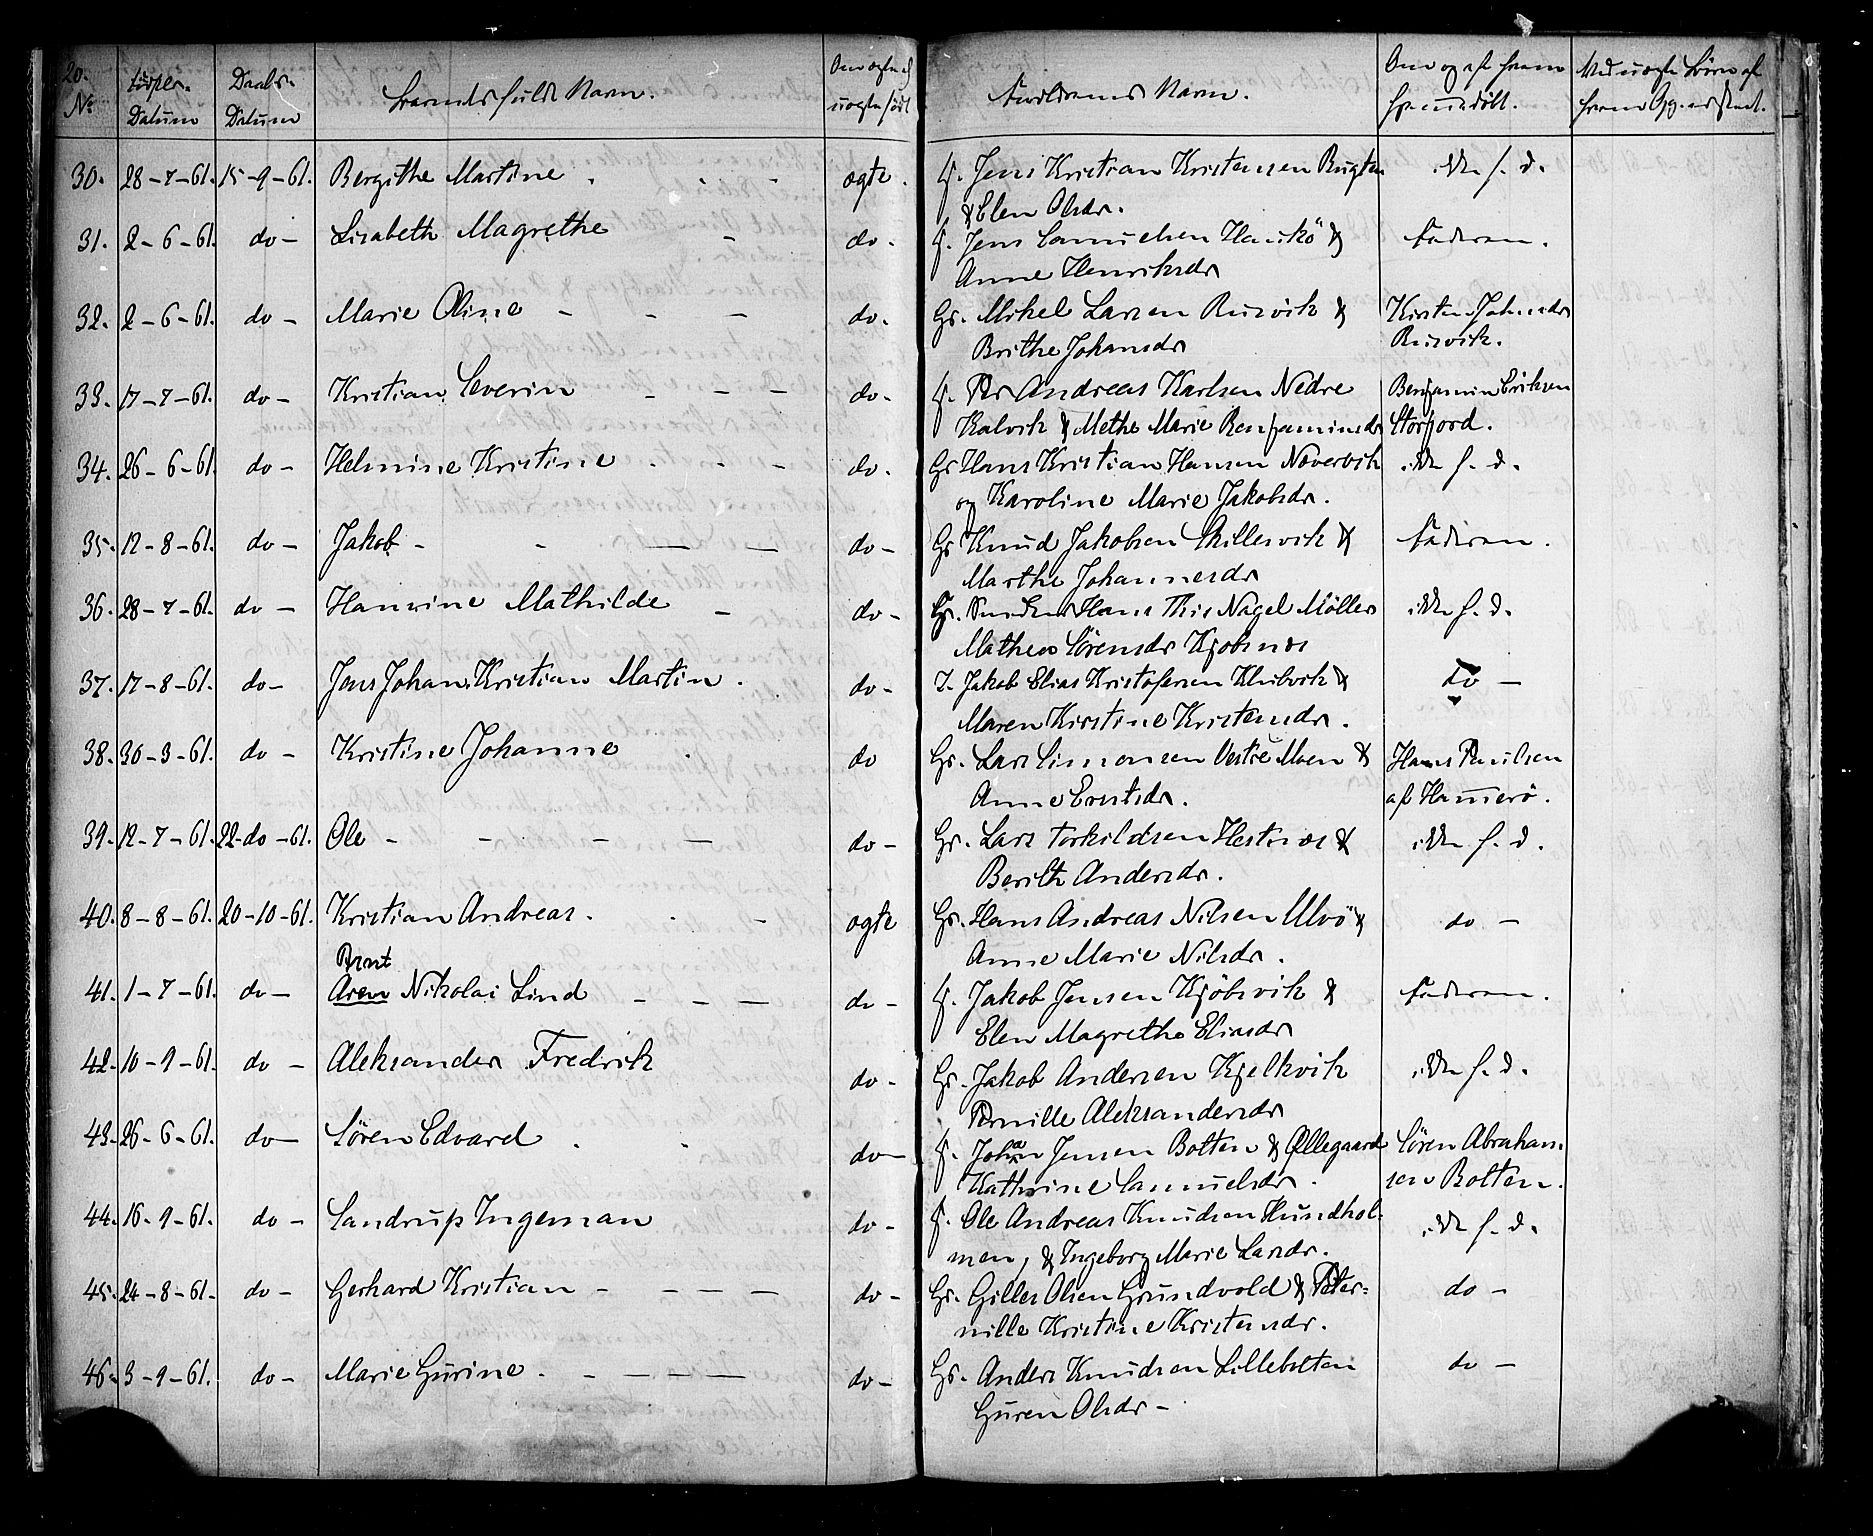 20.
No
Födsels-
Datum
Daabs-
Datum
Barnets fulde Navn.
Om ægte el
uægte født
Forældrenes Navn.
Om og af hvem
hjemmedøbt.
Ved uægte Børn af
hvem Opg. er skeet.
30. 28-7-61. 15-9-61. Bergithe Martine . - - ogte. f. Jens Kristian Kristensen ikke h. d.
& Elen Olsdr.
31. 2-6-61. do- Lisabeth Magrethe - do- f. Jens Samuelsen & Faderen.
Anne Henriksdr
32. 2-6-61. do- Marie Oline - - - do. Gs. Mikel Larsen Rusvik & Kirsten Johnsdr
Brithe Johansdr Rusvik.
33. 17-7-61. do- Kristian Severin - - - do- f. Per Andreas Karlsen Nedre Benjamin Eriksen
Kalvik & Methe Marie Benjaminsdr Storfjord.
34. 26-6-61. do- Helmine Kristine . - - do. Gs Hans Kristian Hansen Novervik ikke h. d.
og Karoline Marie Jakobsdr.
35. 12-8-61. do- Jakob - - - - do- Gs Knud Jakobsen & Faderen.
Marthe Johannesdr
36. 28-7-61. do- Hansine Mathilde - do- Gs. Hans Nagel Möller ikke h. d.
Mathea Sörensdr Kjobsnes
37. 17-8-61. do- Jens Johan Kristian Martin . do- I. Jakob Elias Kristofersen Klubvik & do -
Maren Kirstine Kristensdr.
38. 30-3-61. do- Kristine Johanne . do Gs. Lars Simonsen Vestre Moen & Hans Paulsen
Anne Erntsdr. af Hammerö.
39. 12-7-61. 22-do-61. Ole - - - - do- Gs. Lars Torkildsen Hestnes & ikke h. d.
Berith Andersdr.
40. 8-8-61. 20-10-61. Kristian Andreas. . - ogte Gs. Hans Andreas Nilsen Ulvö & do -
Anne Marie Nilsdr.
Bernt
41. 1-7-61. do- Aren Nikolai Lind - - - do- f. Jakob Jensen Kjöbsvik & Faderen.
Elen Magrethe Eliasdr
42. 10-9-61. do- Aleksander Fredrik do- Gs. Jakob Andersen Kjelkvik ikke h. d.
Pernille Aleksandersdr
43. 26-6-61. do- Sören Edvard . . do- f. Johan Jensen Bolten & Ollegaard Sören Abraham
Kathrine Samuelsdr. sen Bolten.
44. 16-9-61. do- Sandrup Ingeman do- f. Ole Andreas Knudsen Hundhol-
men, & Ingeborg Marie Larsdr. ikke h. d.
45. 24-8-61- do- Gerhard Kristian - - - - do- Gs. Gilles Olsen Grundvold & Peter= do -
nille Kristine Kristensdr.
46. 3-9-61. do- Marie Gurine . - - - - do- Gs. Anders Knudsen Lillebolten do -
Guren Olsdr -